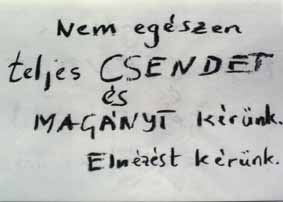 Nem egészen
teljes CSENDET
és
MAGÁNYT kérünk.
Elnézést kérünk.